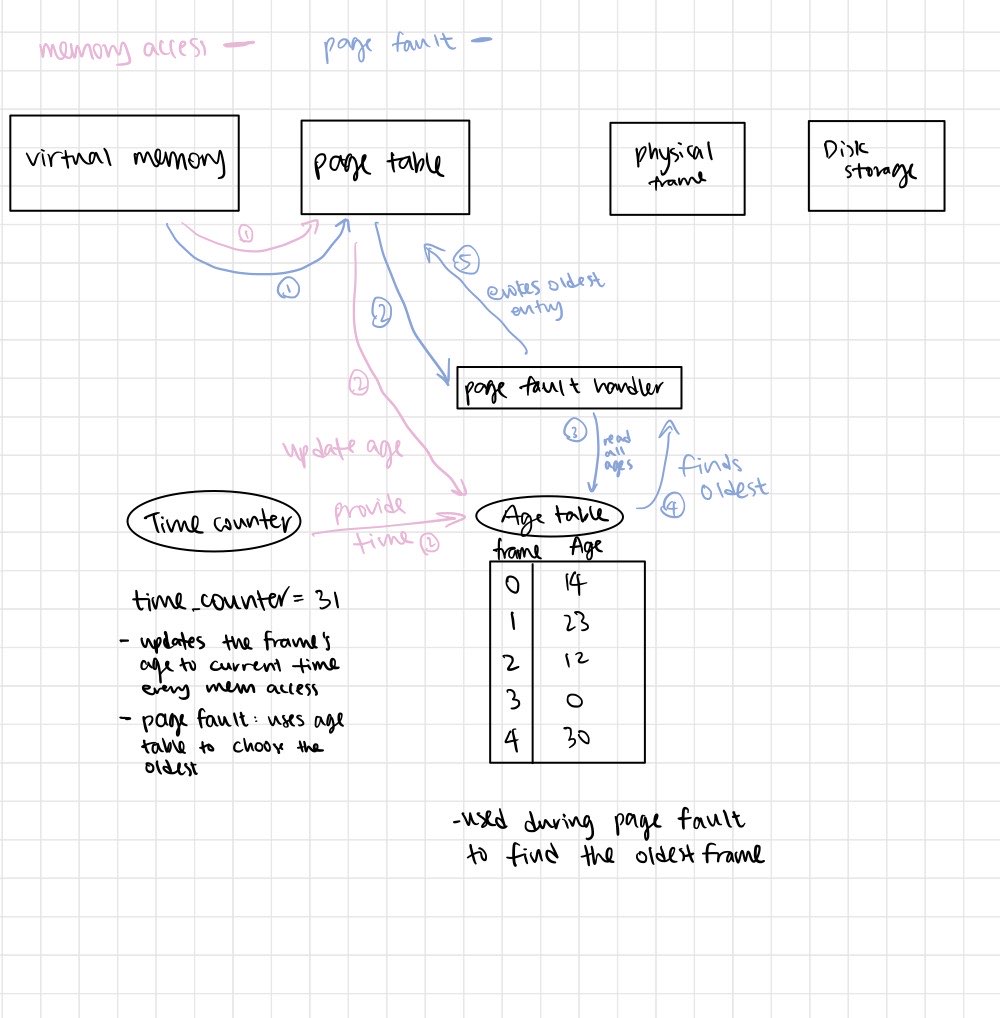 memory access —
page fault —
virtual memory
page table
physical
frame
Disk
storage
①
①
②
⑤
evokes oldest
entry
②
page fault handler
update age
③
read
all
ages
④
finds
oldest
Time counter
provide
time ②
Age table
frame Age
0 14
1 23
2 12
3 0
4 30
time_counter = 31
- updates the frame's
age to current time
every mem access
- page fault: uses age
table to choose the
oldest
-used during page fault
to find the oldest frame